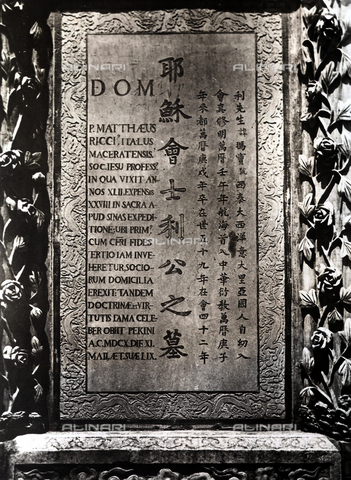 D O M
P. MATTHÆUS
RICCI, ITALUS
MACERATENSIS.
SOC. IESU PROFESS,
IN QUA VIXIT AN
NOS XLII. EXPENSIS
XXVIII IN SACRA A
PUD SINAS EXPEDI
TIONE; UBI PRIM,
CUM CHRI FIDES
TERTIO IAM INVE
HERETUR, SOCIO
RUM DOMICILIA
EREXIT. TANDEM
DOCTRINÆ ET VIR
TUTIS FAMA CELE
BER OBIIT PEKINI
A.C. MDCX. DIE XI.
MAII. ÆT. SUÆ LIX.
耶穌會士利公之墓
利先生諱瑪竇號西泰大西洋意大里亞國人自幼入
會真修明萬曆壬午年航海首入中華衍教萬曆庚子
年來都萬曆庚戌年卒在世五十九年在會四十二年
ALINARI
ALINARI
ALINARI
ALINARI
ALINARI
ALINARI